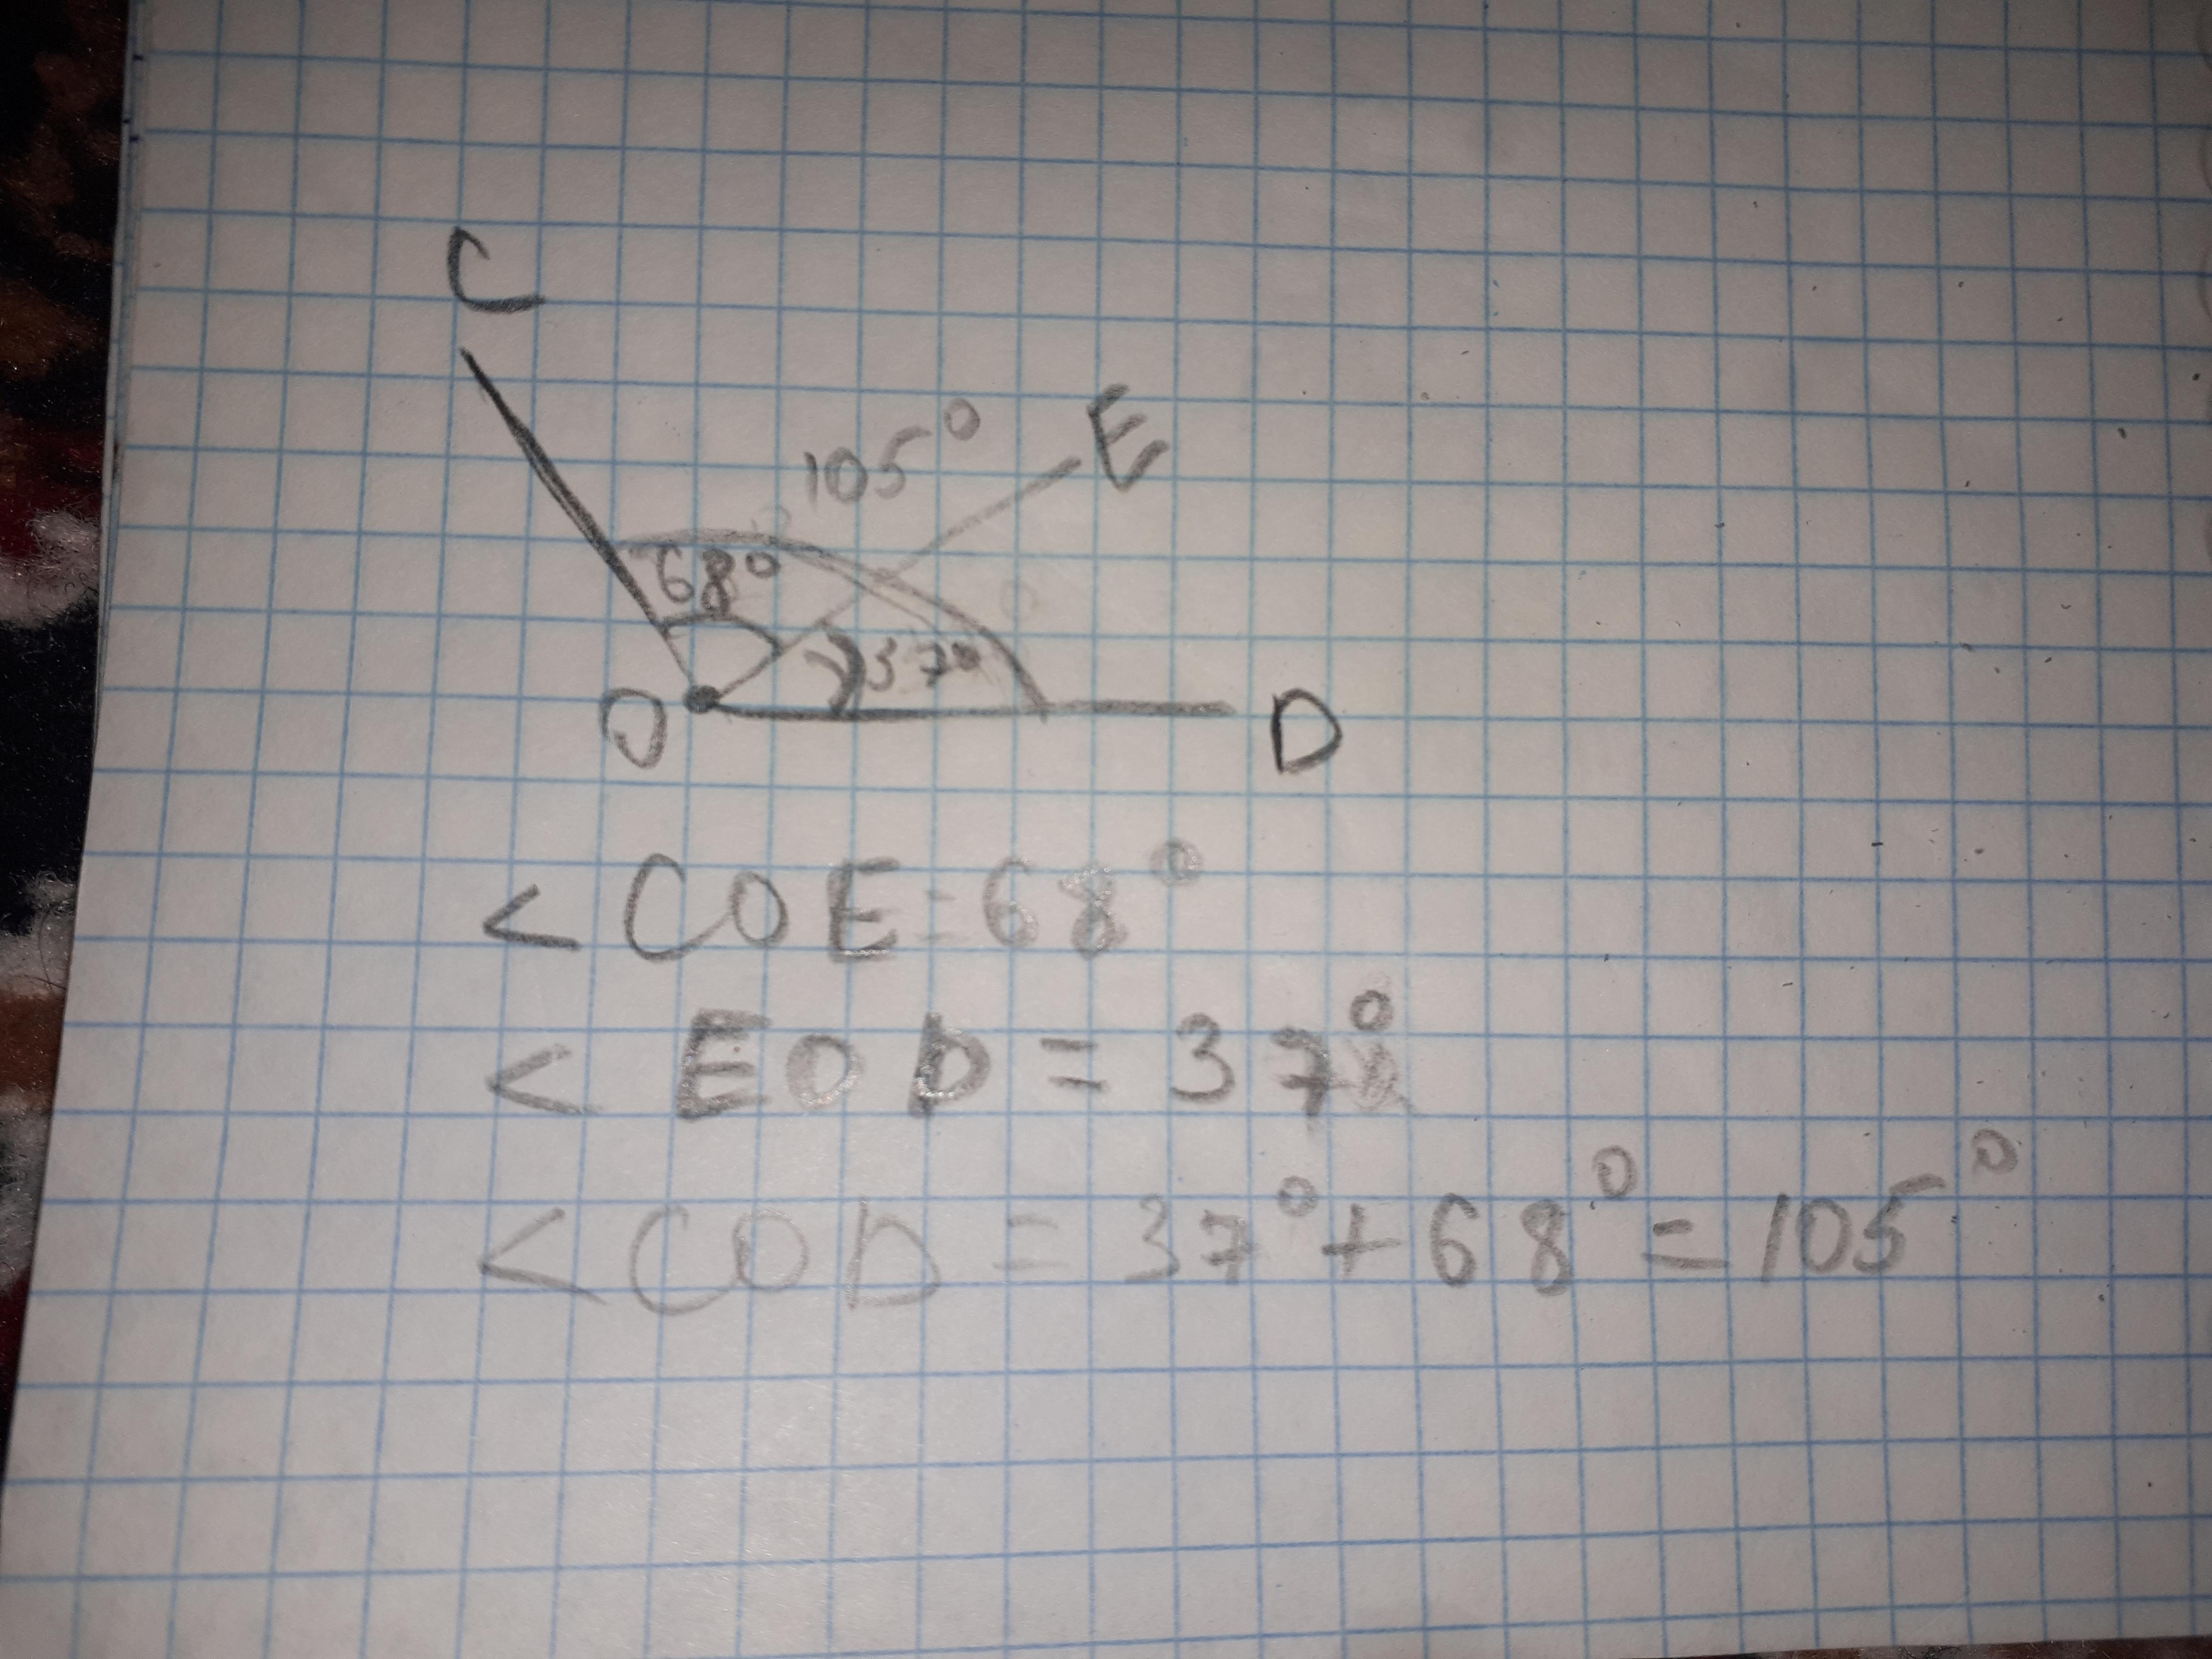 C
105°
E
68°
37°
O
D
<COE=68°
<EOD=37°
<COD=37°+68°=105°